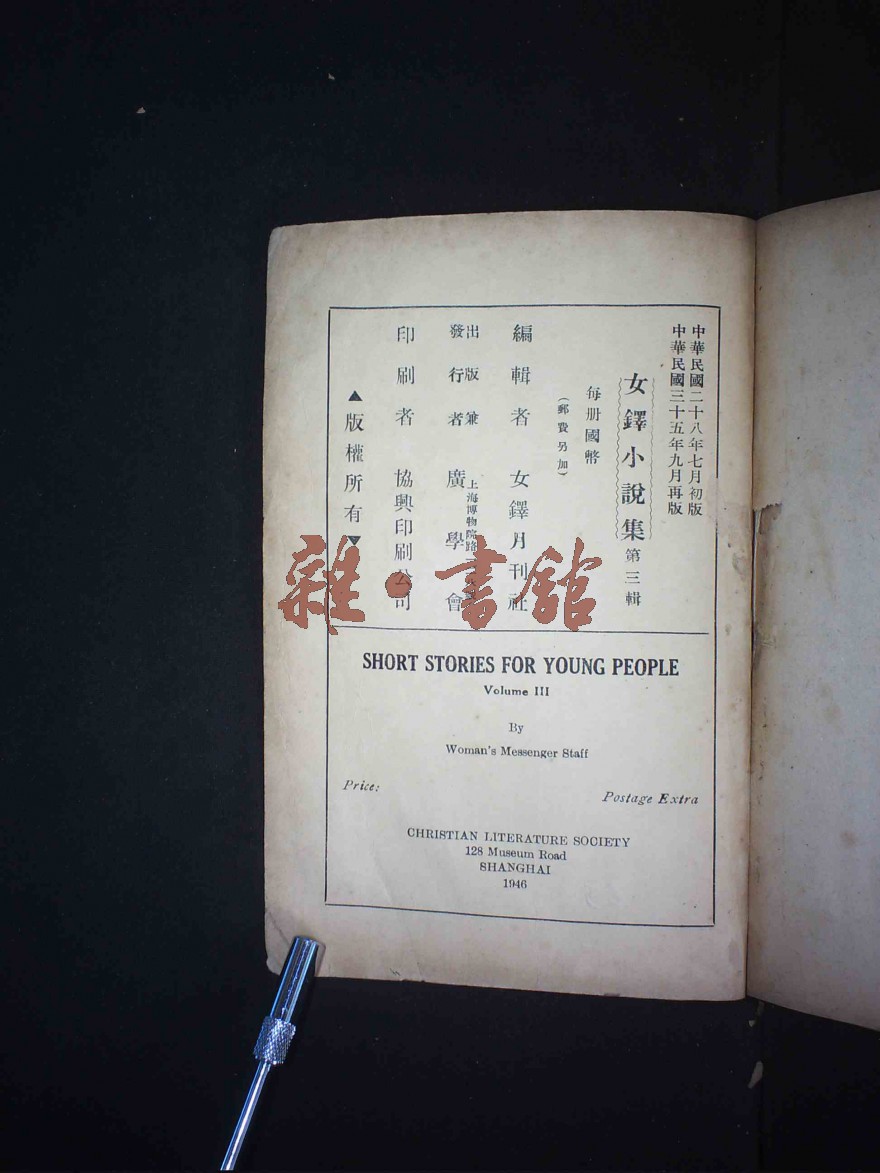 中華民國二十八年七月初版
中華民國三十五年九月再版
女鐸小說集 第三輯
每册國幣
(郵費另加)
編輯者 女鐸月刊社
出版兼
發行者
上海博物院路
廣學會
印刷者 協興印刷公司
▲版權所有▼
雜·書館
SHORT STORIES FOR YOUNG PEOPLE
Volume III
By
Woman's Messenger Staff
Price:
Postage Extra
CHRISTIAN LITERATURE SOCIETY
128 Museum Road
SHANGHAI
1946